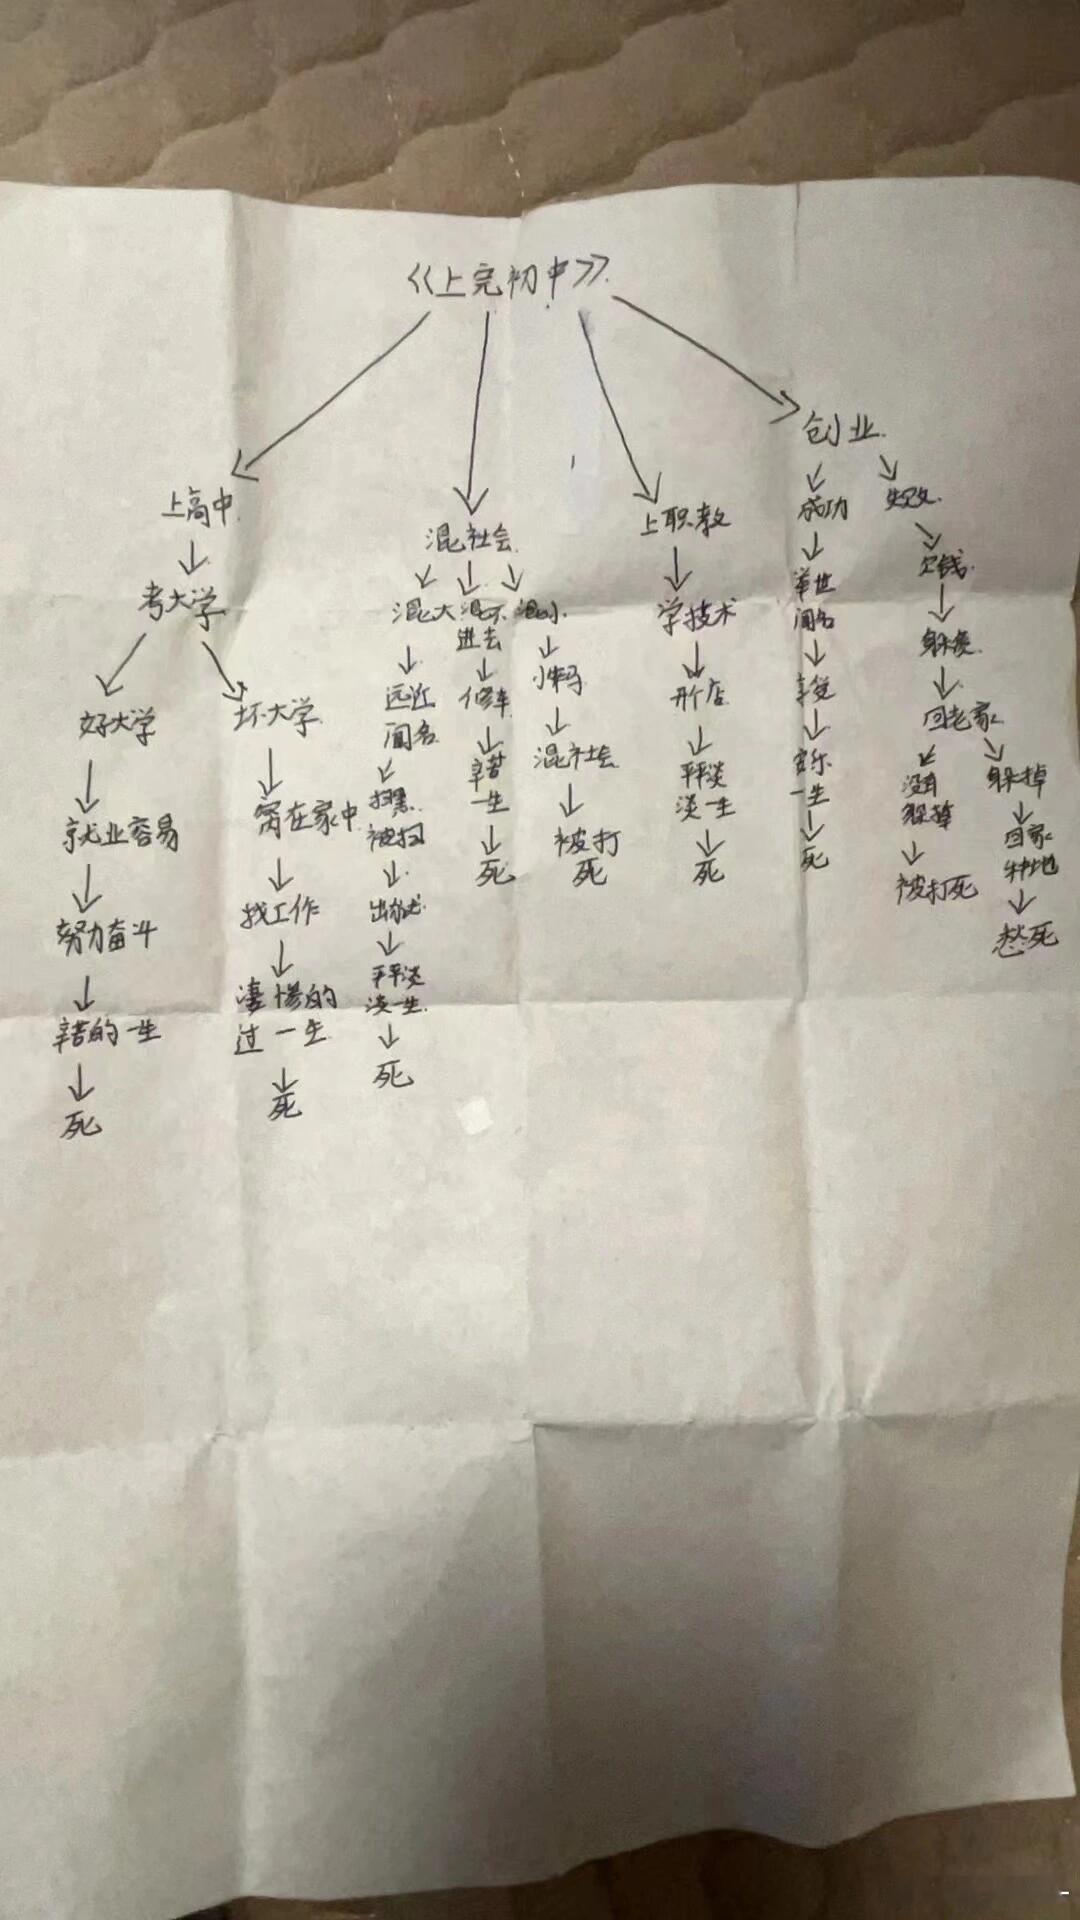 《上完初中》
上高中
考大学
好大学
就业容易
努力奋斗
辛苦的一生
死
坏大学
窝在家中
找工作
凄惨的
过一生
死
混社会
混大
远近
闻名
扫黑
被扫
出狱
平平淡
淡一生
死
混不
进去
修车
辛苦
一生
死
混小
小牛马
混社会
被打
死
上职教
学技术
开个店
平平淡
淡一生
死
创业
成功
举世
闻名
享受
安乐
一生
死
失败
欠钱
躲债
回老家
没有
躲掉
被打死
躲掉
回家
种地
愁死